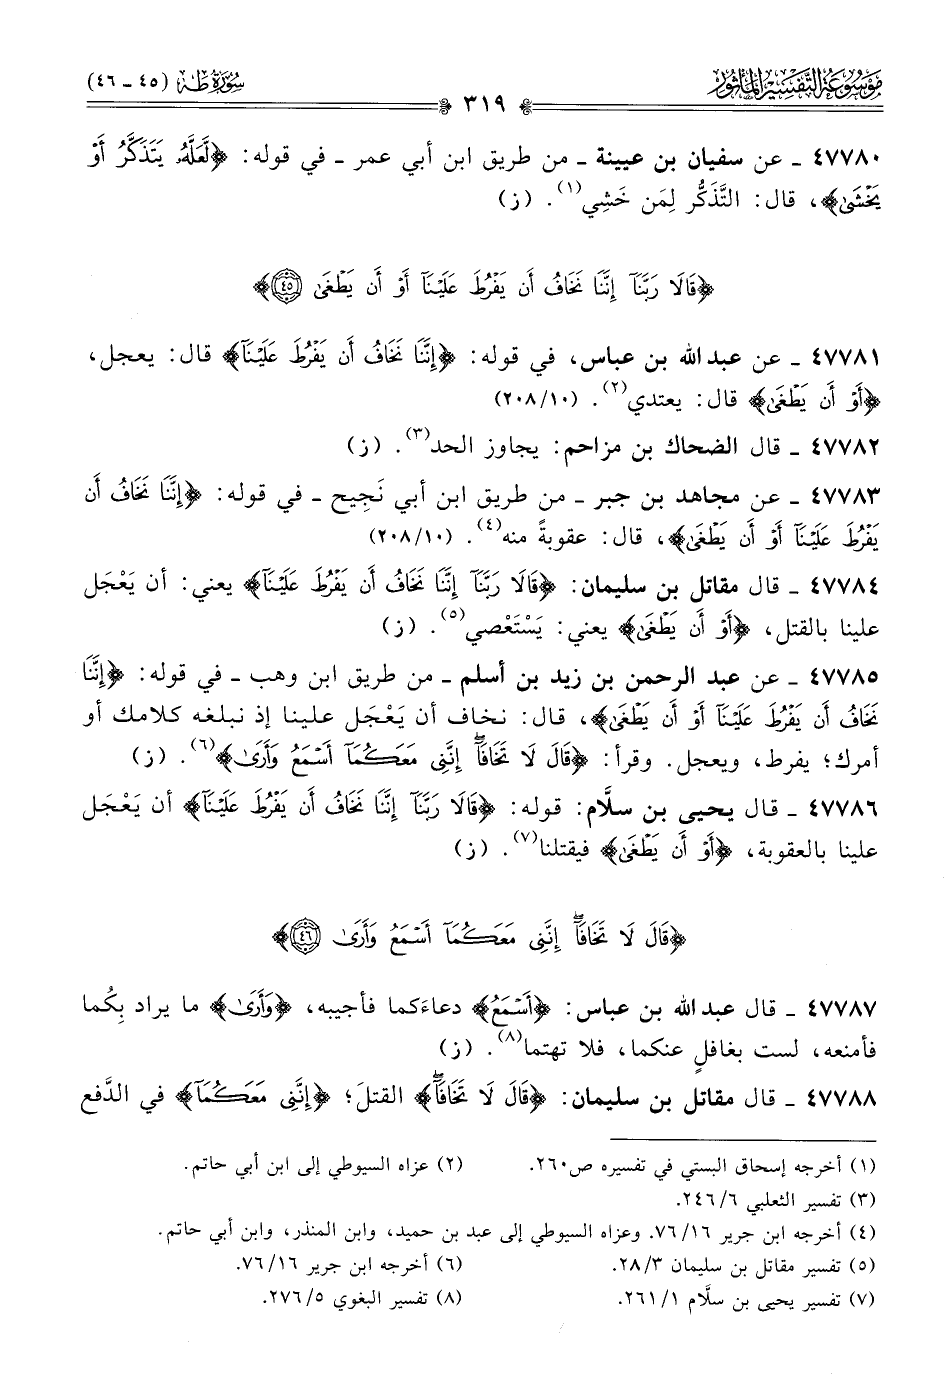 مَوْسُوعَةُ التَّفْسِيرِ المَأْثُور
سُورَةُ طه (٤٥ - ٤٦)
٣١٩
٤٧٧٨٠ - عن سفيان بن عيينة - من طريق ابن أبي عمر - في قوله: ﴿لَّعَلَّهُۥ يَتَذَكَّرُ أَوْ
يَخْشَىٰ﴾، قال: التَّذَكُّر لِمَن خَشِي(١). (ز)
﴿قَالَا رَبَّنَآ إِنَّنَا نَخَافُ أَن يَفْرُطَ عَلَيْنَآ أَوْ أَن يَطْغَىٰ ٤٥﴾
٤٧٧٨١ - عن عبد الله بن عباس، في قوله: ﴿إِنَّنَا نَخَافُ أَن يَفْرُطَ عَلَيْنَآ﴾ قال: يعجل،
﴿أَوْ أَن يَطْغَىٰ﴾ قال: يعتدي(٢). (٢٠٨/١٠)
٤٧٧٨٢ - قال الضحاك بن مزاحم: يجاوز الحد(٣). (ز)
٤٧٧٨٣ - عن مجاهد بن جبر - من طريق ابن أبي نَجيح - في قوله: ﴿إِنَّنَا نَخَافُ أَن
يَفْرُطَ عَلَيْنَآ أَوْ أَن يَطْغَىٰ﴾، قال: عقوبةً منه(٤). (٢٠٨/١٠)
٤٧٧٨٤ - قال مقاتل بن سليمان: ﴿قَالَا رَبَّنَآ إِنَّنَا نَخَافُ أَن يَفْرُطَ عَلَيْنَآ﴾ يعني: أن يَعْجَل
علينا بالقتل، ﴿أَوْ أَن يَطْغَىٰ﴾ يعني: يَسْتَعْصي(٥). (ز)
٤٧٧٨٥ - عن عبد الرحمن بن زيد بن أسلم - من طريق ابن وهب - في قوله: ﴿إِنَّنَا
نَخَافُ أَن يَفْرُطَ عَلَيْنَآ أَوْ أَن يَطْغَىٰ﴾، قال: نخاف أن يَعْجَل علينا إذ نبلغه كلامك أو
أمرك؛ يفرط، ويعجل. وقرأ: ﴿قَالَ لَا تَخَافَآ ۖ إِنَّنِى مَعَكُمَآ أَسْمَعُ وَأَرَىٰ﴾(٦). (ز)
٤٧٧٨٦ - قال يحيى بن سلَّام: قوله: ﴿قَالَا رَبَّنَآ إِنَّنَا نَخَافُ أَن يَفْرُطَ عَلَيْنَآ﴾ أن يَعْجَل
علينا بالعقوبة، ﴿أَوْ أَن يَطْغَىٰ﴾ فيقتلنا(٧). (ز)
﴿قَالَ لَا تَخَافَآ ۖ إِنَّنِى مَعَكُمَآ أَسْمَعُ وَأَرَىٰ ٤٦﴾
٤٧٧٨٧ - قال عبد الله بن عباس: ﴿أَسْمَعُ﴾ دعاءَكما فأجيبه، ﴿وَأَرَىٰ﴾ ما يراد بِكُما
فأمنعه، لست بغافلٍ عنكما، فلا تهتما(٨). (ز)
٤٧٧٨٨ - قال مقاتل بن سليمان: ﴿قَالَ لَا تَخَافَآ﴾ القتلَ؛ ﴿إِنَّنِى مَعَكُمَآ﴾ في الدَّفع
(١) أخرجه إسحاق البستي في تفسيره ص٢٦٠.
(٢) عزاه السيوطي إلى ابن أبي حاتم.
(٣) تفسير الثعلبي ٢٤٦/٦.
(٤) أخرجه ابن جرير ٧٦/١٦. وعزاه السيوطي إلى عبد بن حميد، وابن المنذر، وابن أبي حاتم.
(٥) تفسير مقاتل بن سليمان ٢٨/٣.
(٦) أخرجه ابن جرير ٧٦/١٦.
(٧) تفسير يحيى بن سلَّام ٢٦١/١.
(٨) تفسير البغوي ٢٧٦/٥.